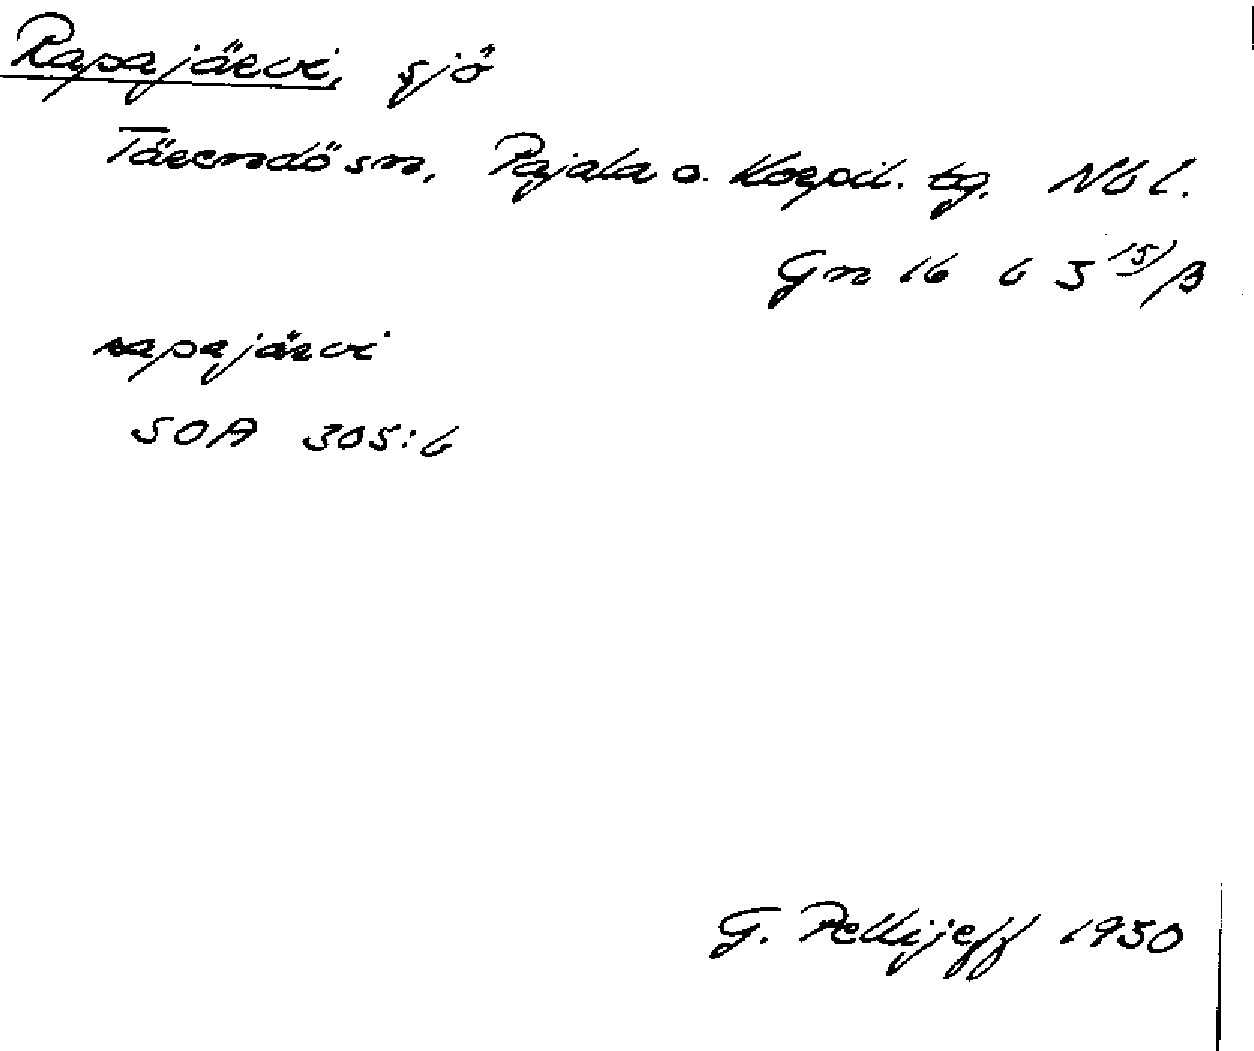 Rapajärvi, sjö
Tärendö sn, Pajala o. Korpil. tg. Nbl.
Gn 16 b 3 15/B
rapajärvi
SOA 305:6
G. Pellijeff 1950